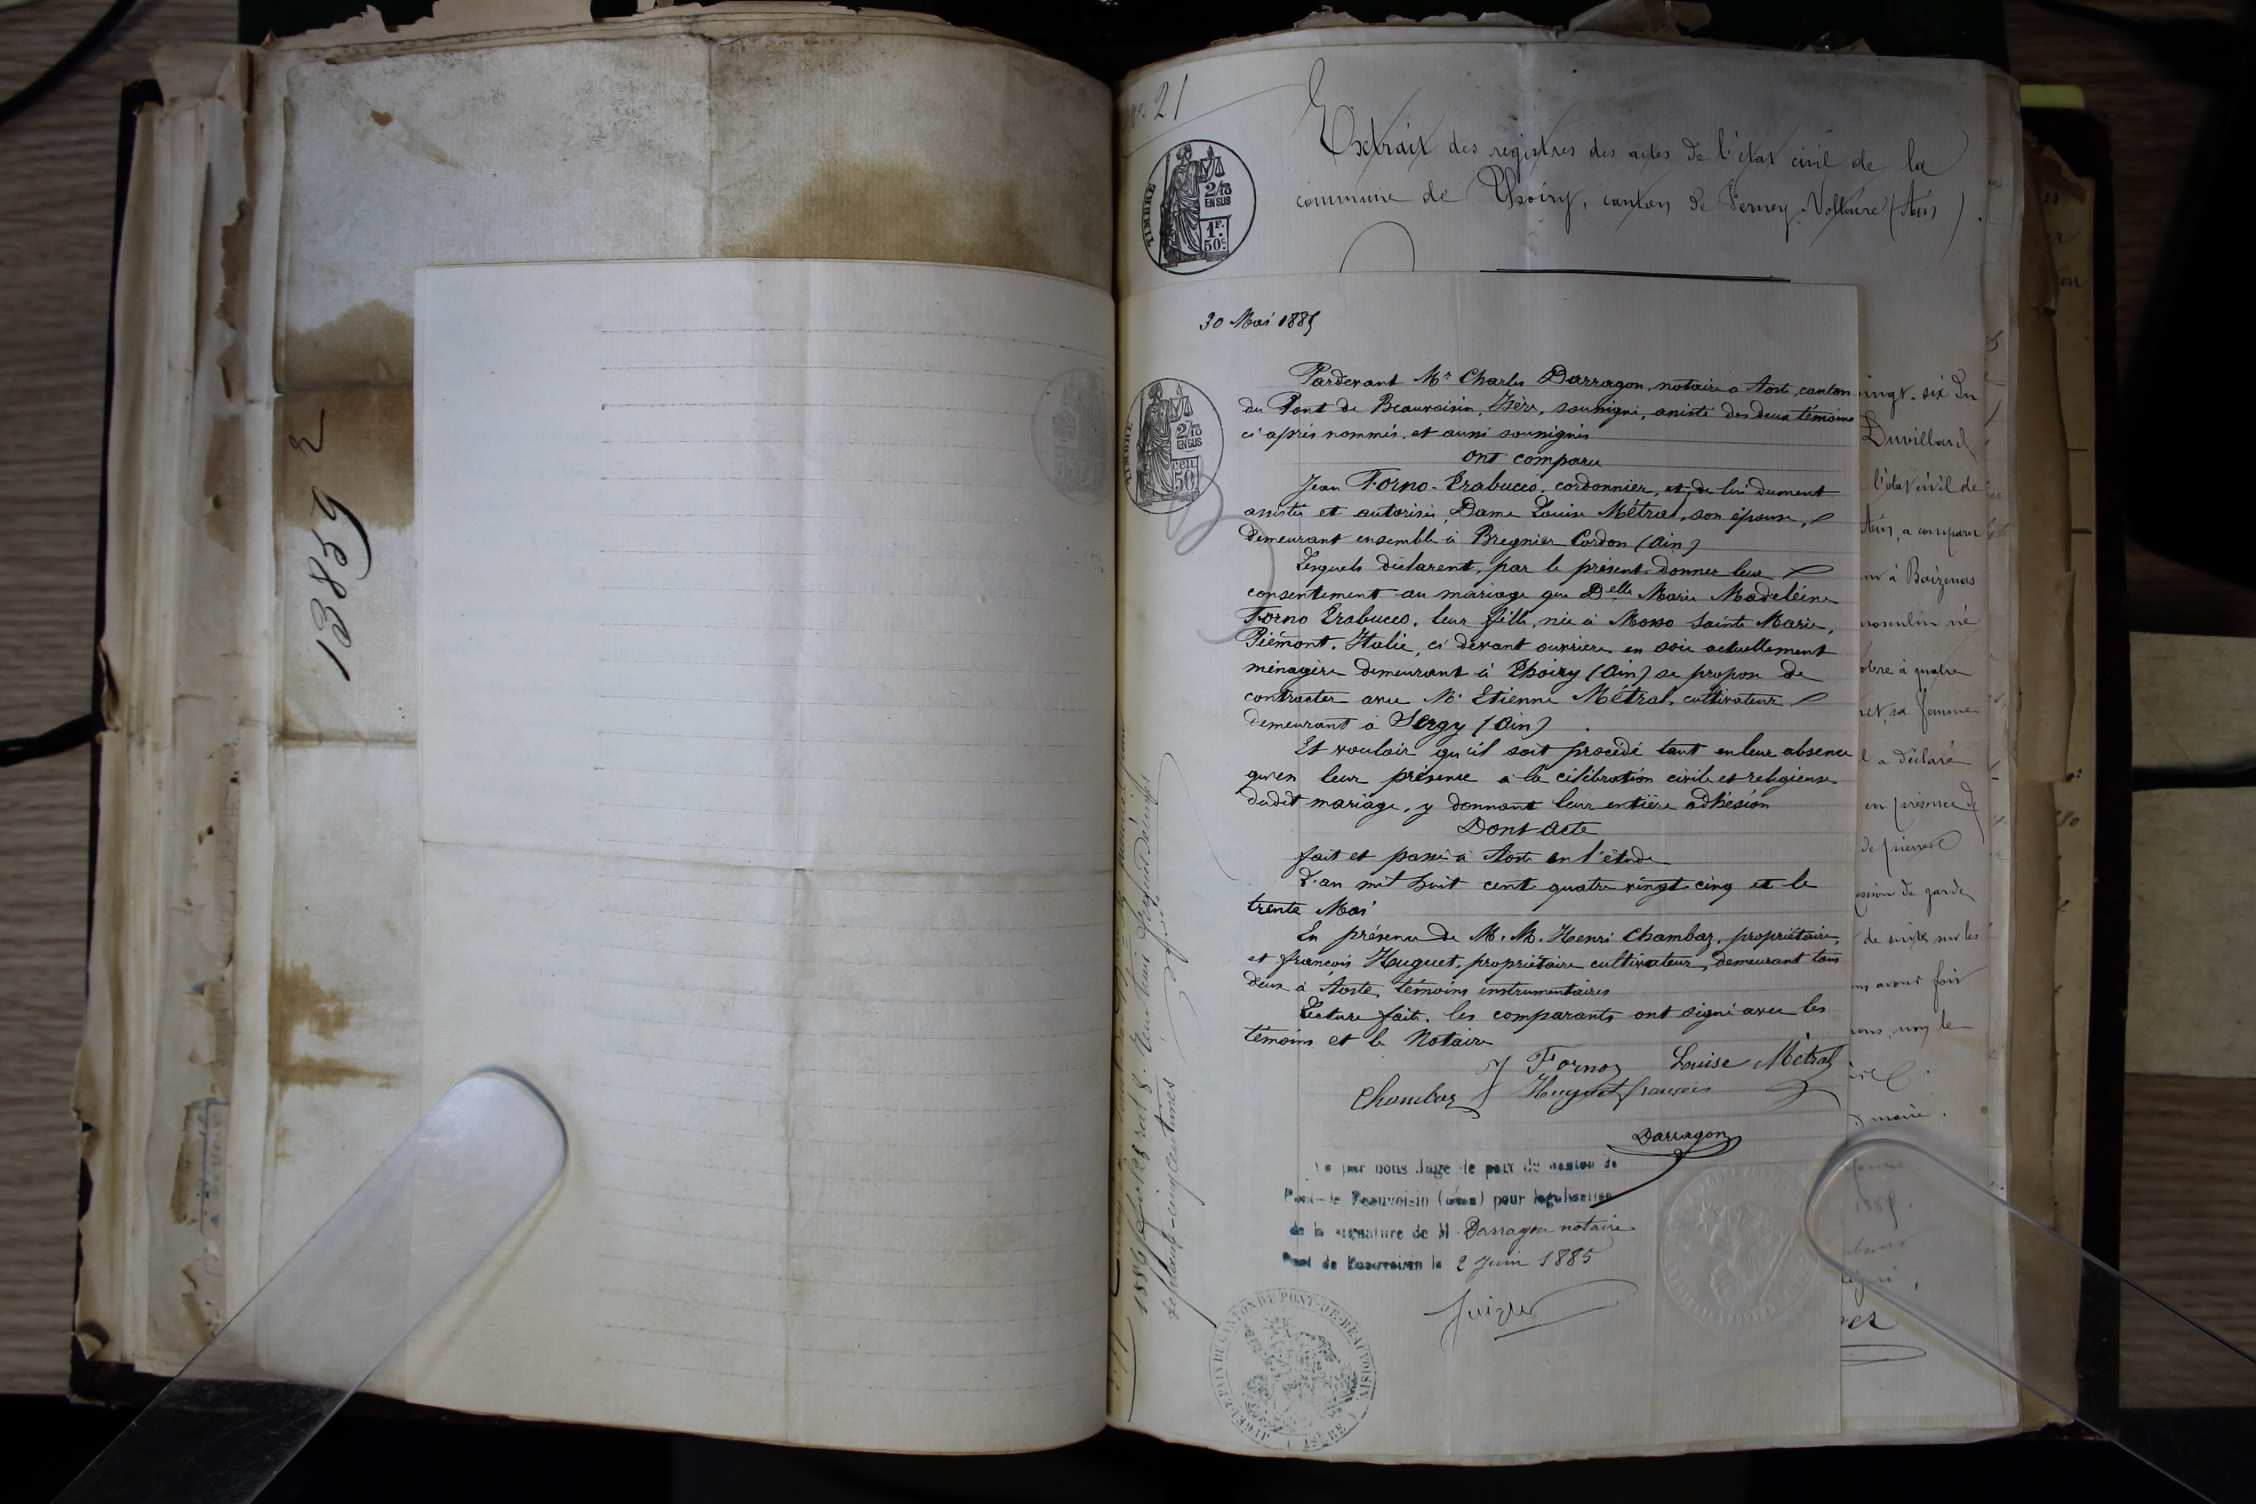 13859 2
No. 21
TIMBRE
2/10
EN SUS
1F.
50c
Extrait des registres des actes de l'état civil de la
commune de Thoiry, canton de Ferney-Voltaire (Ain).
30 Mai 1885
TIMBRE
2/10
EN SUS
CEN
50
Pardevant Mr Charles Darragon, notaire a Aoste, canton
du Pont de Beauvoisin, Isère, soussigné, assisté des deux témoins
ci après nommés, et aussi soussignés
Ont comparu
Jean Forno-Trabucco, cordonnier, et, de lui dument
assistée et autorisée, Dame Louise Métral, son épouse,
demeurant ensemble à Bregnier Cordon (Ain)
Lesquels déclarent, par le présent, donner leur
consentement au mariage que Delle Marie Madeleine
Forno Trabucco, leur fille, née à Mosso Sainte Marie,
Piémont, Italie, ci devant ouvrière en soie actuellement
ménagère demeurant à Thoiry (Ain) se propose de
contracter avec Mr Etienne Métral, cultivateur
demeurant à Sergy (Ain)
Et vouloir qu'il soit procédé tant en leur absence
qu'en leur présence a la célébration civile et religieuse
dudit mariage, y donnant leur entière adhésion
Dont Acte
fait et passé à Aoste en l'étude
L'an mil huit cent quatre vingt cinq et le
trente Mai
En présence de M.M. Henri Chambaz, propriétaire,
et françois Huguet, propriétaire cultivateur, demeurant tous
deux à Aoste, témoins instrumentaires
Lecture faite, les comparants ont signé avec les
témoins et le Notaire
J Forno Louise Métral
Chambaz Huguet françois
Darragon
Vu par nous Juge de paix du canton de
Pont-de-Beauvoisin (Isère) pour légalisation
de la signature de M. Darragon notaire
Pont de Beauvoisin le 2 Juin 1885
JUGE DE PAIX DU CANTON DU PONT-DE-BEAUVOISIN
(ISÈRE)
vingt-six du
Duvillard
l'état civil de
Ain, a comparu
à Baizenas
masculin né
à quatre
sa femme
a déclaré
en présence de
de pierres
de garde
de suite sur les
avons fait
nous, le
maire.